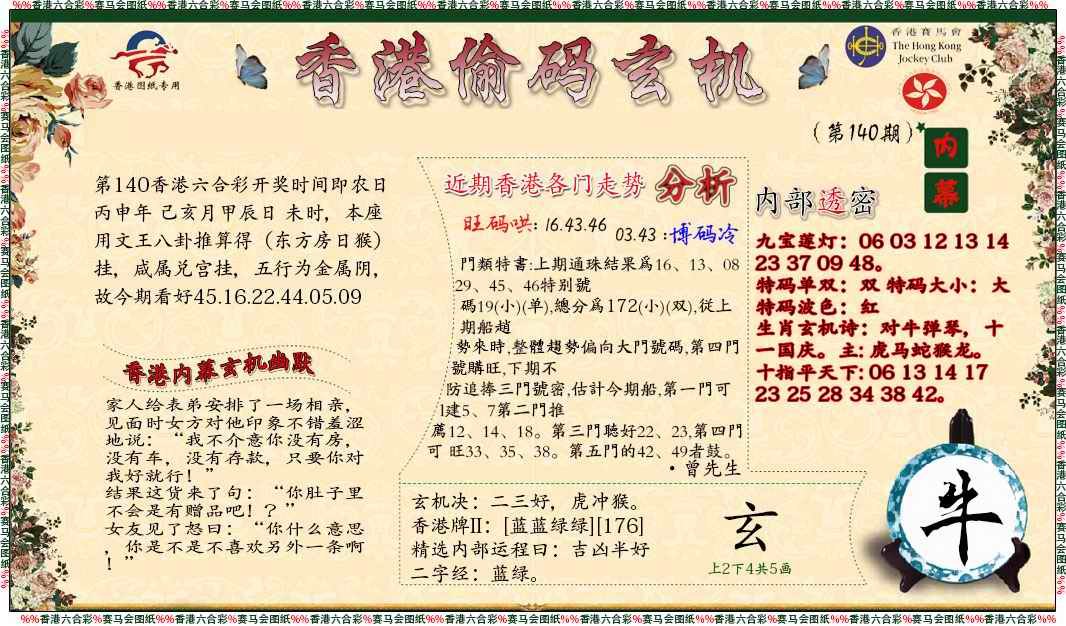 %%香港六合彩%赛马会图纸%%香港六合彩%赛马会图纸%%香港六合彩%赛马会图纸%%香港六合彩%赛马会图纸%%香港六合彩%赛马会图纸%%香港六合彩%赛马会图纸%%香港六合彩%%
香港图纸专用
香港偷码玄机
香港賽馬會
The Hong Kong
Jockey Club
（第140期）
内幕
第140香港六合彩开奖时间即农日
丙申年 己亥月甲辰日 未时，本座
用文王八卦推算得（东方房日猴）
挂，戚属兑宫挂，五行为金属阴，
故今期看好45.16.22.44.05.09
香港内幕玄机幽默
家人给表弟安排了一场相亲，
见面时女方对他印象不错羞涩
地说：“我不介意你没有房，
没有车，没有存款，只要你对
我好就行！”
结果这货来了句：“你肚子里
不会是有赠品吧！？”
女友见了怒曰：“你什么意思
，你是不是不喜欢另外一条啊
！”
近期香港各门走势 分析
旺码哄: 16.43.46
03.43 :博码冷
門類特書:上期通珠結果爲16、13、08
29、45、46特别號
碼19(小)(单),總分爲172(小)(双),従上
期船趙
勢來時,整體趨勢偏向大門號碼,第四門
號購旺,下期不
防追捧三門號密,估計今期船,第一門可
1建5、7第二門推
薦12、14、18。第三門聽好22、23,第四門
可 旺33、35、38。第五門的42、49者鼓。
·曾先生
内部透密
九宝莲灯：06 03 12 13 14
23 37 09 48。
特码单双：双 特码大小：大
特码波色：红
生肖玄机诗：对牛弹琴，十
一国庆。主: 虎马蛇猴龙。
十指平天下: 06 13 14 17
23 25 28 34 38 42。
玄机决：二三好，虎冲猴。
香港牌II：[蓝蓝绿绿][176]
精选内部运程曰：吉凶半好
二字经：蓝绿。
玄
上2下4共5画
牛
%%香港六合彩%赛马会图纸%%香港六合彩%赛马会图纸%%香港六合彩%赛马会图纸%%香港六合彩%赛马会图纸%%香港六合彩%赛马会图纸%%香港六合彩%赛马会图纸%%香港六合彩%%